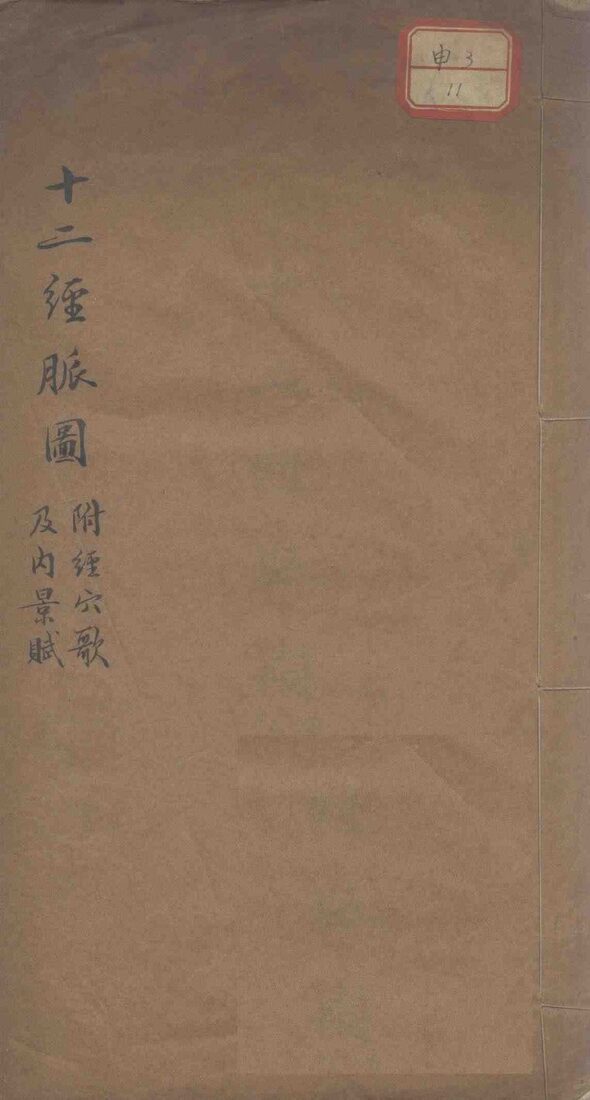 申3
11
十二經脈圖
附經穴歌
及内景賦